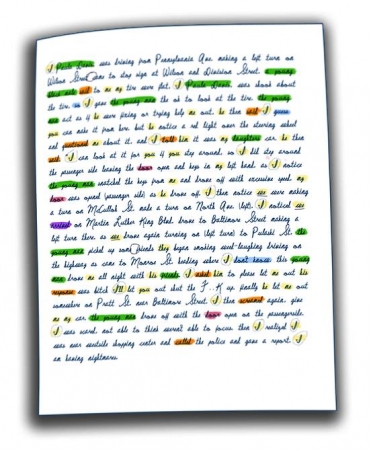 I Paula Davis was driving from Pennsylvania Ave. making a left turn on
Wilson Street came to stop sign at Wilson and Division Street. a young
male said to me my tire were flat. I Paula Davis, was shook about
the tire, so I gave the young man the ok to look at the tire. the young
man act as if he were fixing or trying help me out. he then said I guess
you can make it from here. but he notice a red light under the steering wheel
and questioned me about it. and I told him it was my daughters car. he then
said I can look at it for you if you step around. so I did step around
the passenger side leaving the door open and keys in my left hand. as I notice
the young man snatched the keys from me and drove off with excessive speed. my
door was opened (passenger side) as he drove off. I then notice we were making
a turn on McCulloh St. made a turn on North Ave. (left). I noticed we
arrived on Martin Luther King Blvd. drove to Baltimore Street making a
left turn there. we drove again turning on (left turn) to Pulaski St. the
young man picked up some friends they began smoking weed-laughing driving on
the highway as came to Monroe St. heading where I don't know. this young
man drove me all night with his friends. I asked him to please let me out his
response was bitch I'll let you out shut the F..K up. finally he let me out
somewhere on Pratt St. near Baltimore Street. I then screamed again. give
me my car. the young man drove off with the door open on the passengerside.
I was scared. not able to think weren't able to focus. then I realized I
was near westside shopping center and called the police and gave a report. I
am having nightmares.